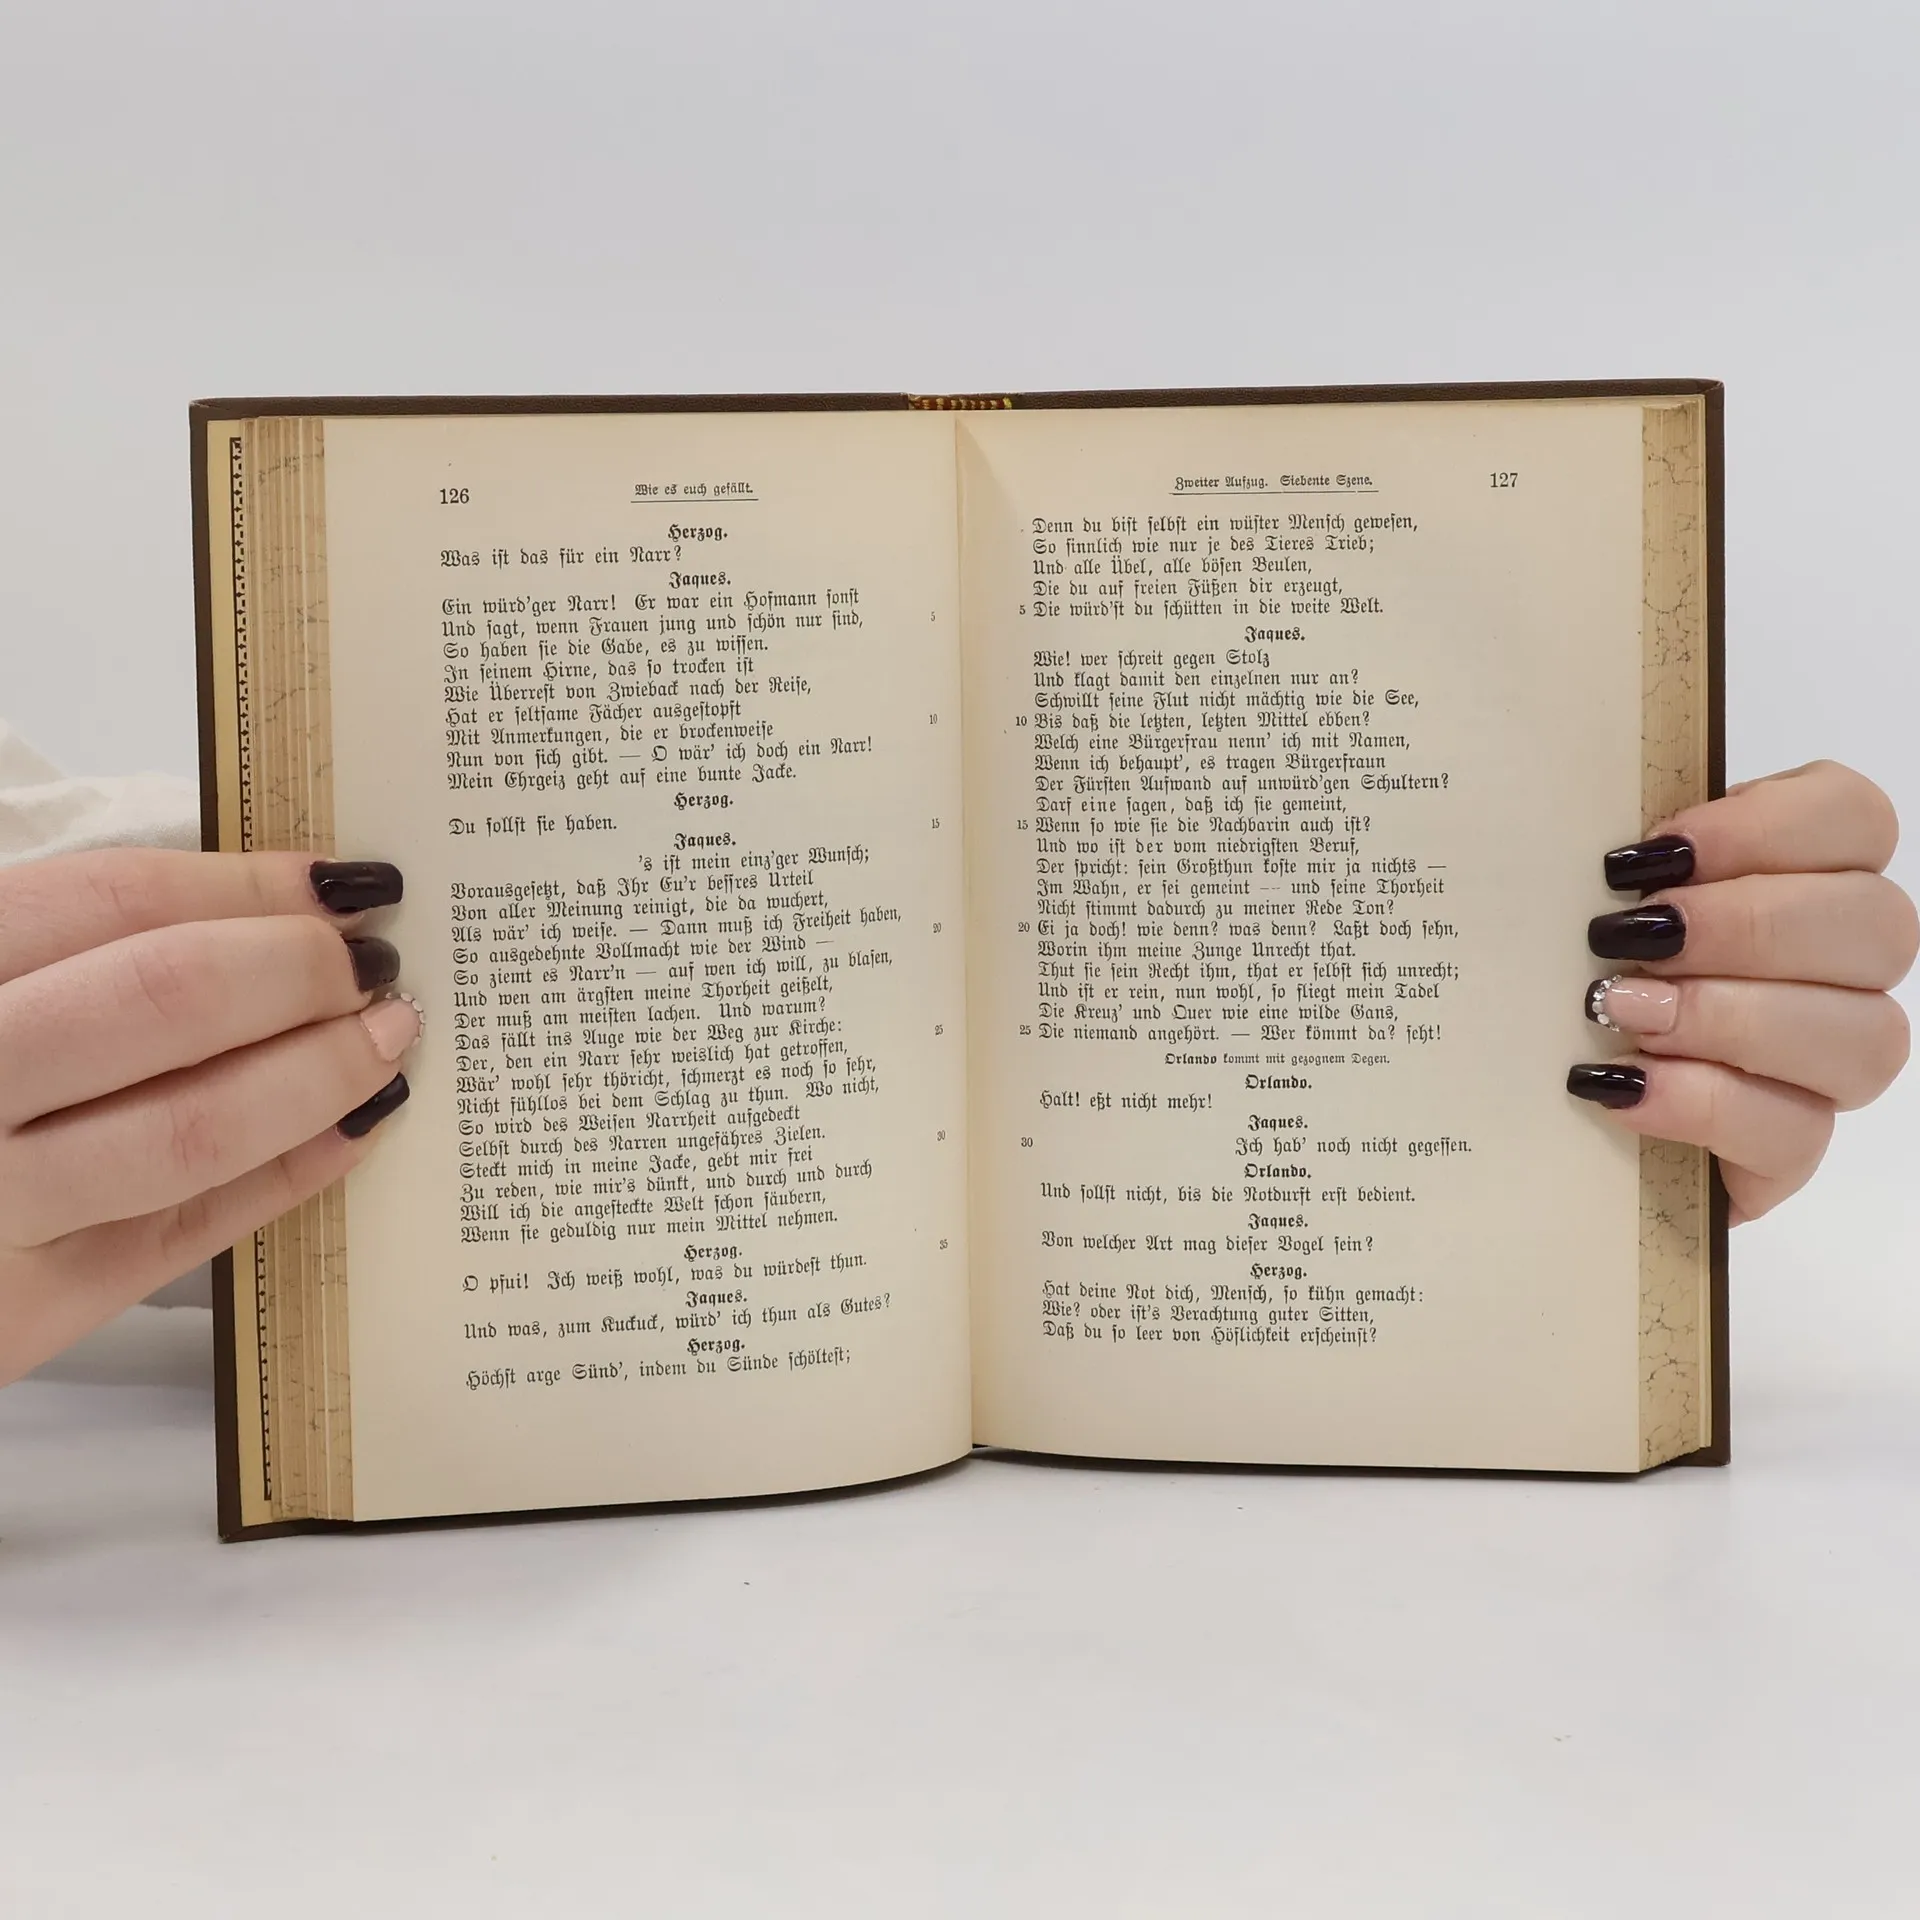 126
Wie es euch gefällt.
Herzog.
Was ist das für ein Narr?
Jaques.
Ein würd'ger Narr! Er war ein Hofmann sonst
Und sagt, wenn Frauen jung und schön nur sind, 5
So haben sie die Gabe, es zu wissen.
In seinem Hirne, das so trocken ist
Wie Überrest von Zwieback nach der Reise,
Hat er seltsame Fächer ausgestopft
Mit Anmerkungen, die er brockenweise 10
Nun von sich gibt. — O wär' ich doch ein Narr!
Mein Ehrgeiz geht auf eine bunte Jacke.
Herzog.
Du sollst sie haben.
Jaques. 15
's ist mein einz'ger Wunsch;
Vorausgesetzt, daß Ihr Eu'r bessres Urteil
Von aller Meinung reinigt, die da wuchert,
Als wär' ich weise. — Dann muß ich Freiheit haben,
So ausgedehnte Vollmacht wie der Wind — 20
So ziemt es Narr'n — auf wen ich will, zu blasen,
Und wen am ärgsten meine Thorheit geißelt,
Der muß am meisten lachen. Und warum?
Das fällt ins Auge wie der Weg zur Kirche:
Der, den ein Narr sehr weislich hat getroffen, 25
Wär' wohl sehr thöricht, schmerzt es noch so sehr,
Nicht fühllos bei dem Schlag zu thun. Wo nicht,
So wird des Weisen Narrheit aufgedeckt
Selbst durch des Narren ungefähres Zielen.
Steckt mich in meine Jacke, gebt mir frei 30
Zu reden, wie mir's dünkt, und durch und durch
Will ich die angesteckte Welt schon säubern,
Wenn sie geduldig nur mein Mittel nehmen.
Herzog.
O pfui! Ich weiß wohl, was du würdest thun. 35
Jaques.
Und was, zum Kuckuck, würd' ich thun als Gutes?
Herzog.
Höchst arge Sünd', indem du Sünde schöltest;
Zweiter Aufzug. Siebente Szene.
127
Denn du bist selbst ein wüster Mensch gewesen,
So sinnlich wie nur je des Tieres Trieb;
Und alle Übel, alle bösen Beulen,
Die du auf freien Füßen dir erzeugt,
5 Die würd'st du schütten in die weite Welt.
Jaques.
Wie! wer schreit gegen Stolz
Und klagt damit den einzelnen nur an?
Schwillt seine Flut nicht mächtig wie die See,
10 Bis daß die letzten, letzten Mittel ebben?
Welch eine Bürgerfrau nenn' ich mit Namen,
Wenn ich behaupt', es tragen Bürgerfraun
Der Fürsten Aufwand auf unwürd'gen Schultern?
Darf eine sagen, daß ich sie gemeint,
15 Wenn so wie sie die Nachbarin auch ist?
Und wo ist der vom niedrigsten Beruf,
Der spricht: sein Großthun koste mir ja nichts —
Im Wahn, er sei gemeint — und seine Thorheit
Nicht stimmt dadurch zu meiner Rede Ton?
20 Ei ja doch! wie denn? was denn? Laßt doch sehn,
Worin ihm meine Zunge Unrecht that.
Thut sie sein Recht ihm, that er selbst sich unrecht;
Und ist er rein, nun wohl, so fliegt mein Tadel
Die Kreuz' und Quer wie eine wilde Gans,
25 Die niemand angehört. — Wer kömmt da? seht!
Orlando kommt mit gezognem Degen.
Orlando.
Halt! eßt nicht mehr!
Jaques.
30 Ich hab' noch nicht gegessen.
Orlando.
Und sollst nicht, bis die Notdurft erst bedient.
Jaques.
Von welcher Art mag dieser Vogel sein?
Herzog.
Hat deine Not dich, Mensch, so kühn gemacht:
Wie? oder ist's Verachtung guter Sitten,
Daß du so leer von Höflichkeit erscheinst?